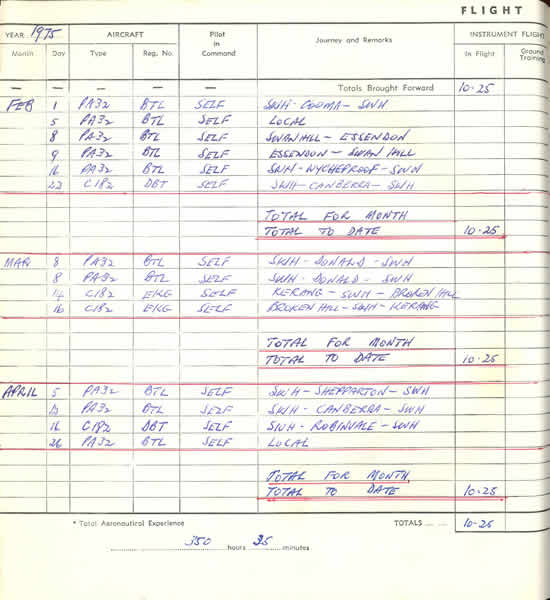 FLIGHT
YEAR 1975 AIRCRAFT Pilot in Command Journey and Remarks INSTRUMENT FLIGHT
Month Day Type Reg. No. In Flight Ground Training
— — — — — Totals Brought Forward 10-25
FEB 1 PA32 BTL SELF SWH - COOMA - SWH
5 PA32 BTL SELF LOCAL
8 PA32 BTL SELF SWAN HILL - ESSENDON
9 PA32 BTL SELF ESSENDON - SWAN HILL
16 PA32 BTL SELF SWH - WYCHEPROOF - SWH
22 C182 DBT SELF SWH - CANBERRA - SWH
TOTAL FOR MONTH
TOTAL TO DATE 10-25
MAR 8 PA32 BTL SELF SWH - DONALD - SWH
8 PA32 BTL SELF SWH - DONALD - SWH
14 C182 EKG SELF KERANG - SWH - BROKEN HILL
16 C182 EKG SELF BROKEN HILL - SWH - KERANG
TOTAL FOR MONTH
TOTAL TO DATE 10-25
APRIL 5 PA32 BTL SELF SWH - SHEPPARTON - SWH
PA32 BTL SELF SWH - CANBERRA - SWH
16 C182 DBT SELF SWH - ROBINVALE - SWH
26 PA32 BTL SELF LOCAL
TOTAL FOR MONTH
TOTAL TO DATE 10-25
* Total Aeronautical Experience TOTALS 10-25
350 hours 35 minutes